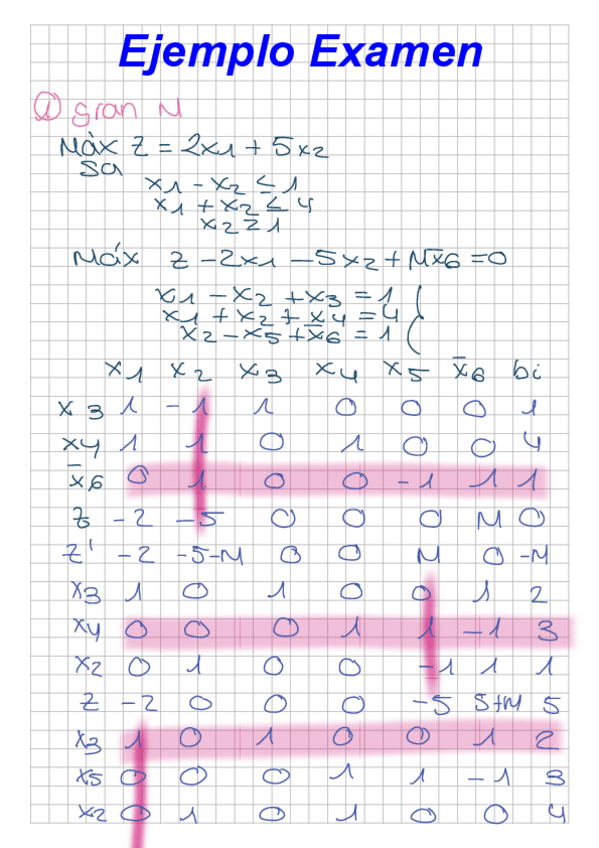 Ejemplo Examen
① gran M
Máx Z = 2x1 + 5x2
Sa
x1 - x2 ≤ 1
x1 + x2 ≤ 4
x2 ≥ 1
Máx Z - 2x1 - 5x2 + Mx̄6 = 0
x1 - x2 + x3 = 1
x1 + x2 + x4 = 4
x2 - x5 + x̄6 = 1
x1 x2 x3 x4 x5 x̄6 bi
x3 1 -1 1 0 0 0 1
x4 1 1 0 1 0 0 4
x̄6 0 1 0 0 -1 1 1
Z -2 -5 0 0 0 M 0
Z' -2 -5-M 0 0 M 0 -M
x3 1 0 1 0 0 1 2
x4 0 0 0 1 1 -1 3
x2 0 1 0 0 -1 1 1
Z -2 0 0 0 -5 5+M 5
x3 1 0 1 0 0 1 2
x5 0 0 0 1 1 -1 3
x2 0 1 0 1 0 0 4